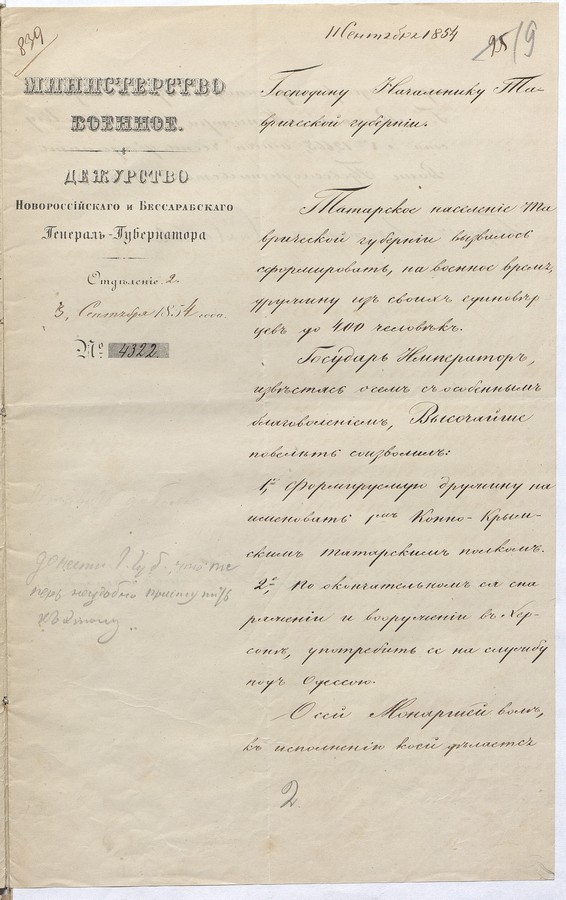 839
11 Сентября 1854
95/9
МИНИСТЕРСТВО
ВОЕННОЕ.
ДЕЖУРСТВО
Новороссійскаго и Бессарабскаго
Генералъ-Губернатора
Отдѣленіе 2
3, Сентября 1854 года.
№ 4322.
Господину Начальнику Та-
врической губерніи.
Татарское населеніе Та
врической губерніи вызвалось
сформировать, на военное время,
дружину изъ своихъ единовѣр
цевъ до 400 человѣкъ.
Государь Императоръ,
извѣстясь о семъ съ особеннымъ
благоволеніемъ, Высочайше
повелѣть соизволилъ:
1е, Формируемую дружину на
именовать 1мъ Конно-Крым-
скимъ татарскимъ полкомъ.
2е, По окончательномъ ея сна
ряженіи и вооруженіи въ Хер-
сонѣ, употребить ее на службу
подъ Одессою.
О сей Монаршей волѣ,
къ исполненію коей дѣлается
донести Г. Губ. что те
перь неудобно приступить
къ этому
2